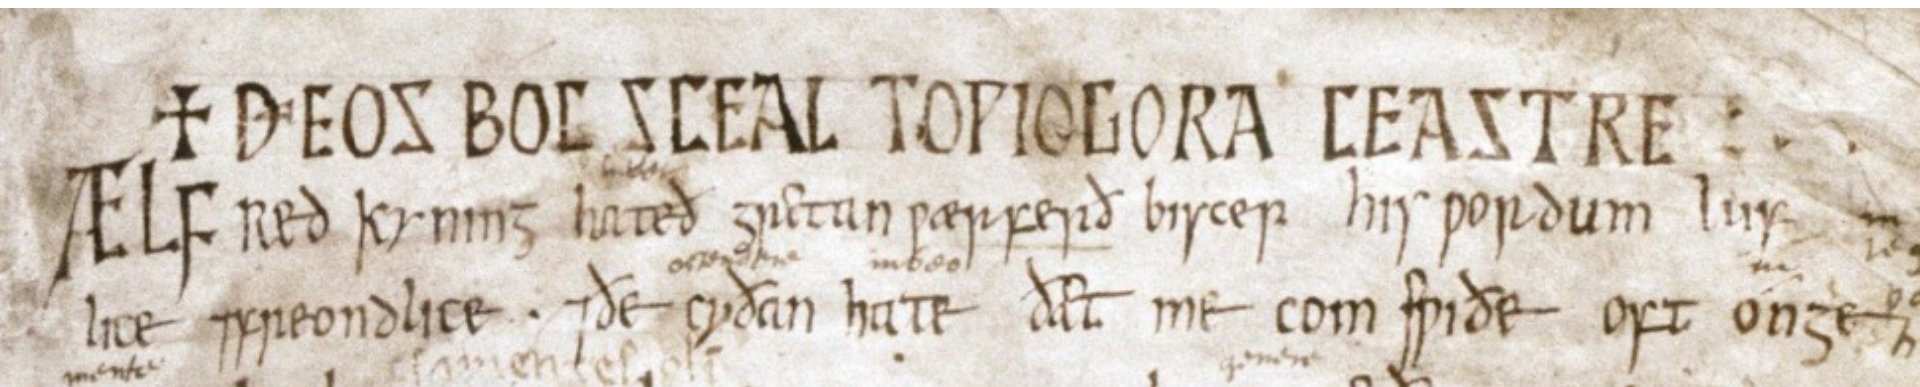 ✝ ÐEOS BOC SCEAL TOǷIOGORA CEASTRE
ÆLFRED kyning hateð gretan ƿærferð biscep his ƿordum luf
ostendere iubeo
lice ⁊freondlice · ⁊ðe cyðan hate ðæt me com sƿiðe oft on ge
mente